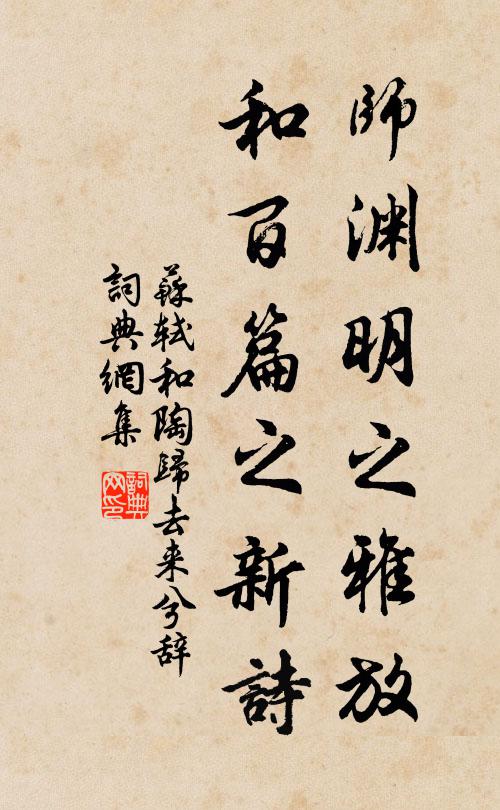 師渊明之雅放
和百篇之新詩
蘇轼和陶歸去来兮辞
詞典網集
詞典网印